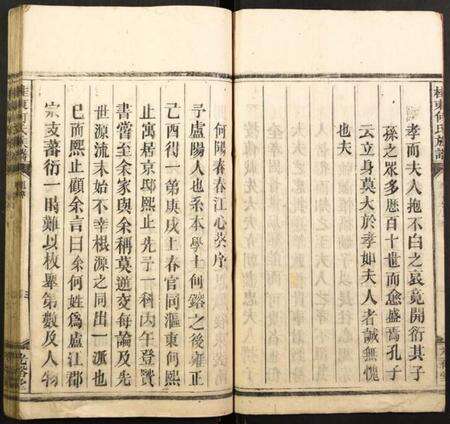 桂東何氏族譜
孝而夫人抱不白之哀竟開衍其子
孫之眾多歷百十世而愈盛焉孔子
云立身莫大於孝如夫人者誠無愧
也夫
何陽春春江心炎序
予盧陽人也系本學士何 之後雍正
己酉得一弟庚戌上春官同 東何熙
止寓居京邸熙止先予一科丙午登賢
書嘗至余家與余稱莫逆交每論及先
世源流未始不幸根源之同出一派也
已而熙止顧余言曰余何姓為盧江郡
宗支蕃衍一時難以枚舉第數及人物
桂東何氏族譜